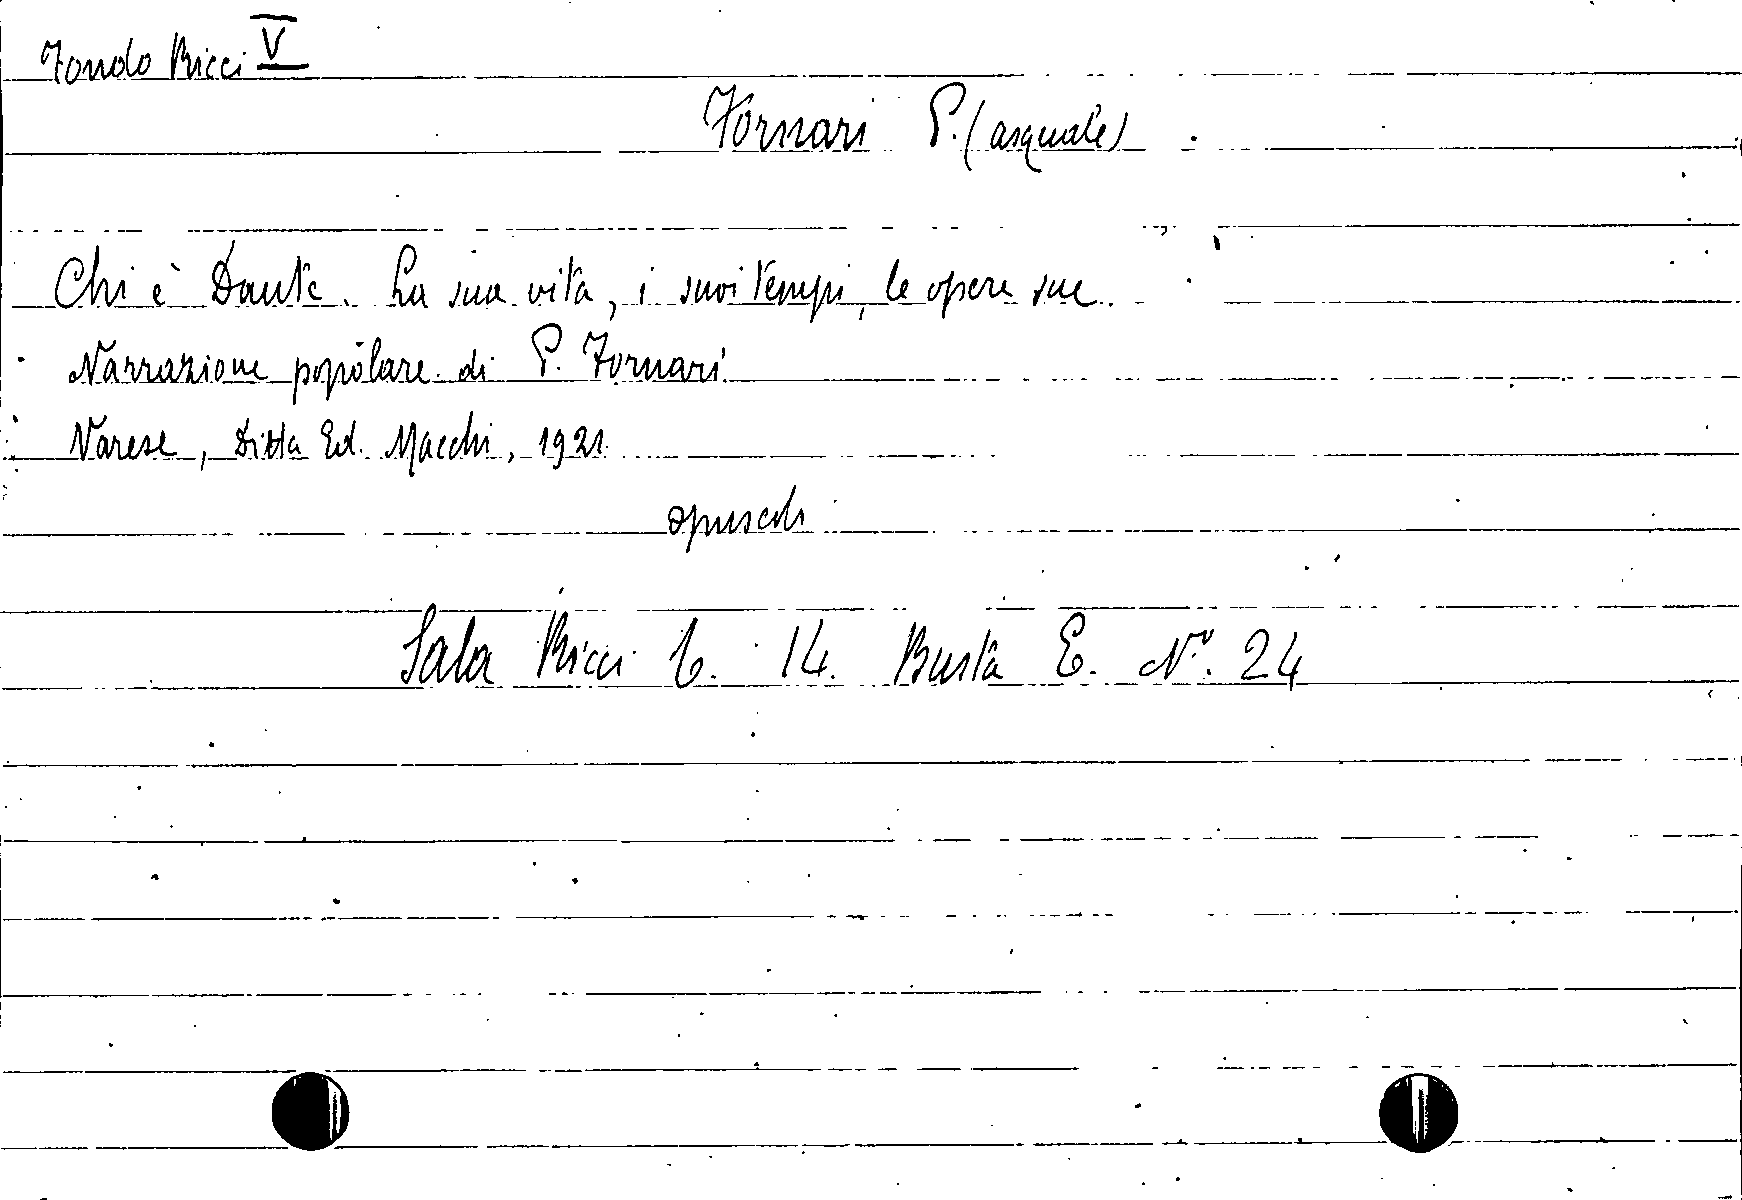 Fondo Ricci V
Fornari P. (asquale)
Chi è Dante. La sua vita, i suoi tempi, le opere sue.
Narrazione popolare di P. Fornari
Varese, Ditta Ed. Macchi, 1921
opuscoli
Sala Ricci 6. 14. Busta E. N°. 24